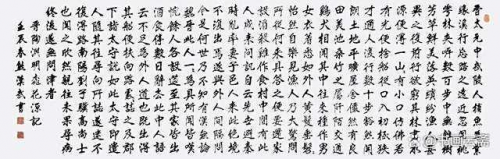 晉太元中武陵人捕魚為業
緣溪行忘路之遠近忽逢桃花
林夾岸數百步中無雜樹
芳草鮮美落英繽紛漁人甚
異之復前行欲窮其林林盡水
源便得一山山有小口仿佛若
有光便捨船從口入初極狹
才通人復行數十步豁然開
朗土地平曠屋舍儼然有良
田美池桑竹之屬阡陌交通
鷄犬相聞其中往來種作男
女衣著悉如外人黃髮垂髫並
怡然自樂見漁人乃大驚問
所從來具答之便要還家設
酒殺鷄作食村中聞有此
人咸來問訊自云先世避秦
時亂率妻子邑人來此絕境
不復出焉遂與外人間隔問
今是何世乃不知有漢無論
魏晉此人一一為具言所聞皆嘆
惋餘人各復延至其家皆出
酒食停數日辭去此中人語
云不足為外人道也既出得
其船便扶向路處處誌之及郡
下詣太守說如此太守即遣
人隨其往尋向所誌遂迷不
復得路南陽劉子驥高尚士
也聞之欣然規往未果尋病
終後遂無問津者
晉陶淵明桃花源記
壬辰春 漢武書